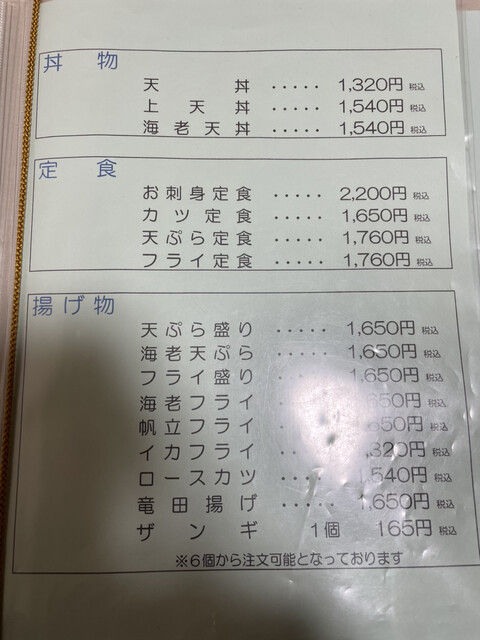 丼物
天丼 ····· 1,320円 税込
上天丼 ····· 1,540円 税込
海老天丼 ····· 1,540円 税込
定食
お刺身定食 ····· 2,200円 税込
カツ定食 ····· 1,650円 税込
天ぷら定食 ····· 1,760円 税込
フライ定食 ····· 1,760円 税込
揚げ物
天ぷら盛り ····· 1,650円 税込
海老天ぷら ····· 1,650円 税込
フライ盛り ····· 1,650円 税込
海老フライ 税込
帆立フライ 税込
イカフライ 税込
ロースカツ ···· 1,540円 税込
竜田揚げ ····· 1,650円 税込
ザンギ 1個 165円 税込
※6個から注文可能となっております